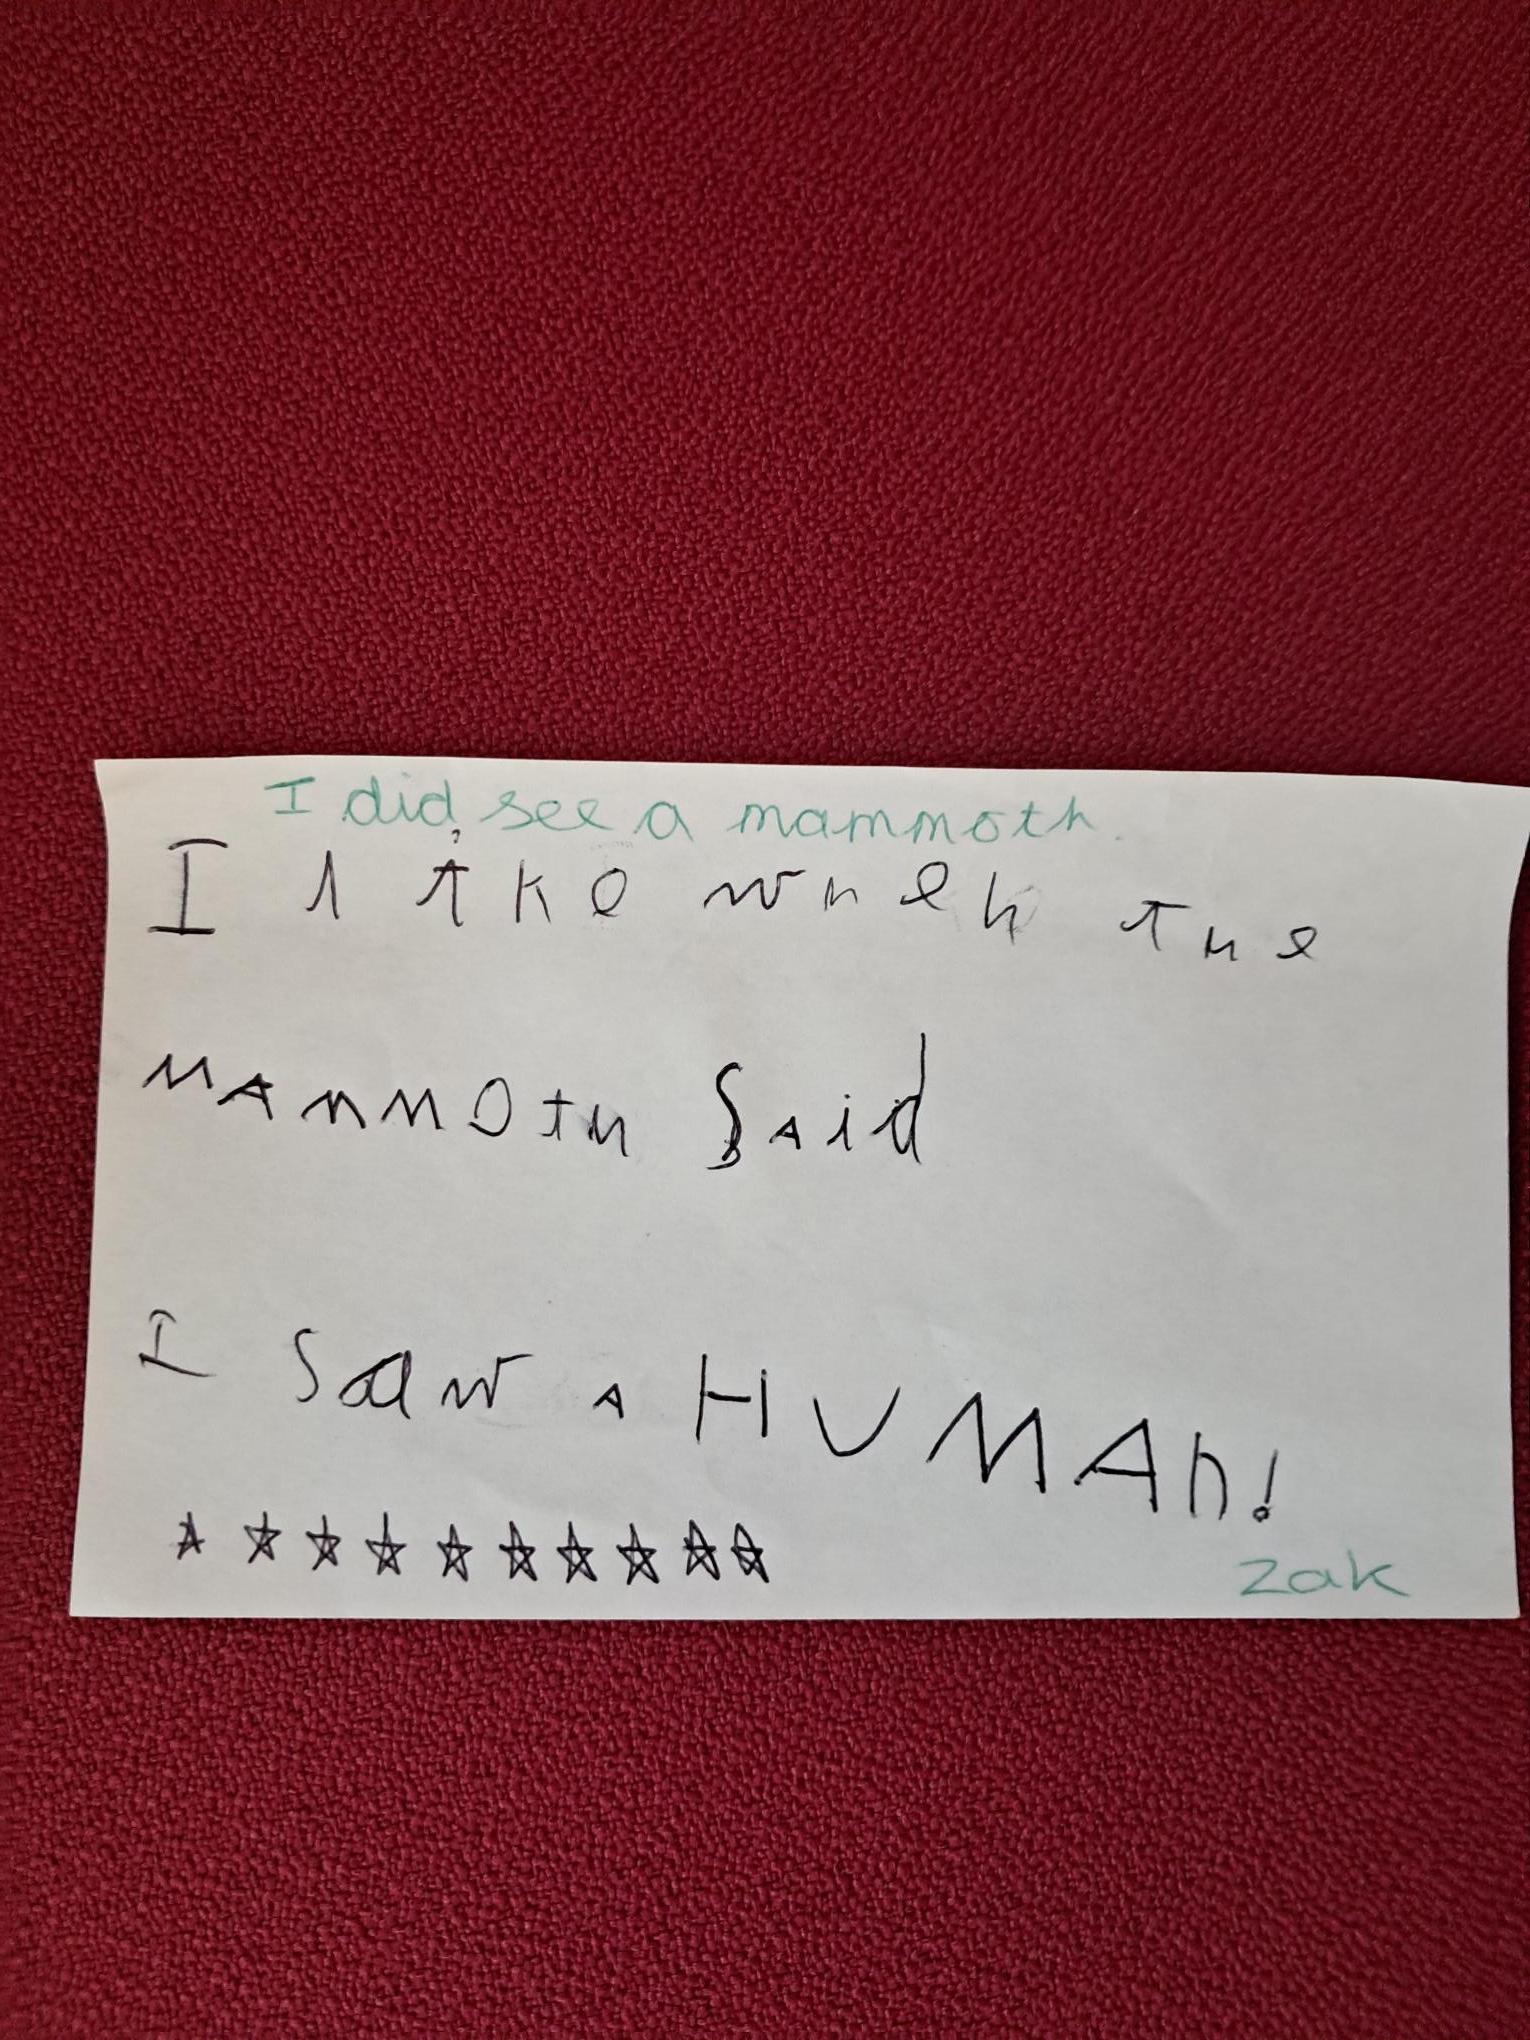 I did see a mammoth.
I like when the
MAMMOTH SAid
I Saw A HUMAn!
☆ ☆ ☆ ☆ ☆ ☆ ☆ ☆ ☆ ☆
Zak